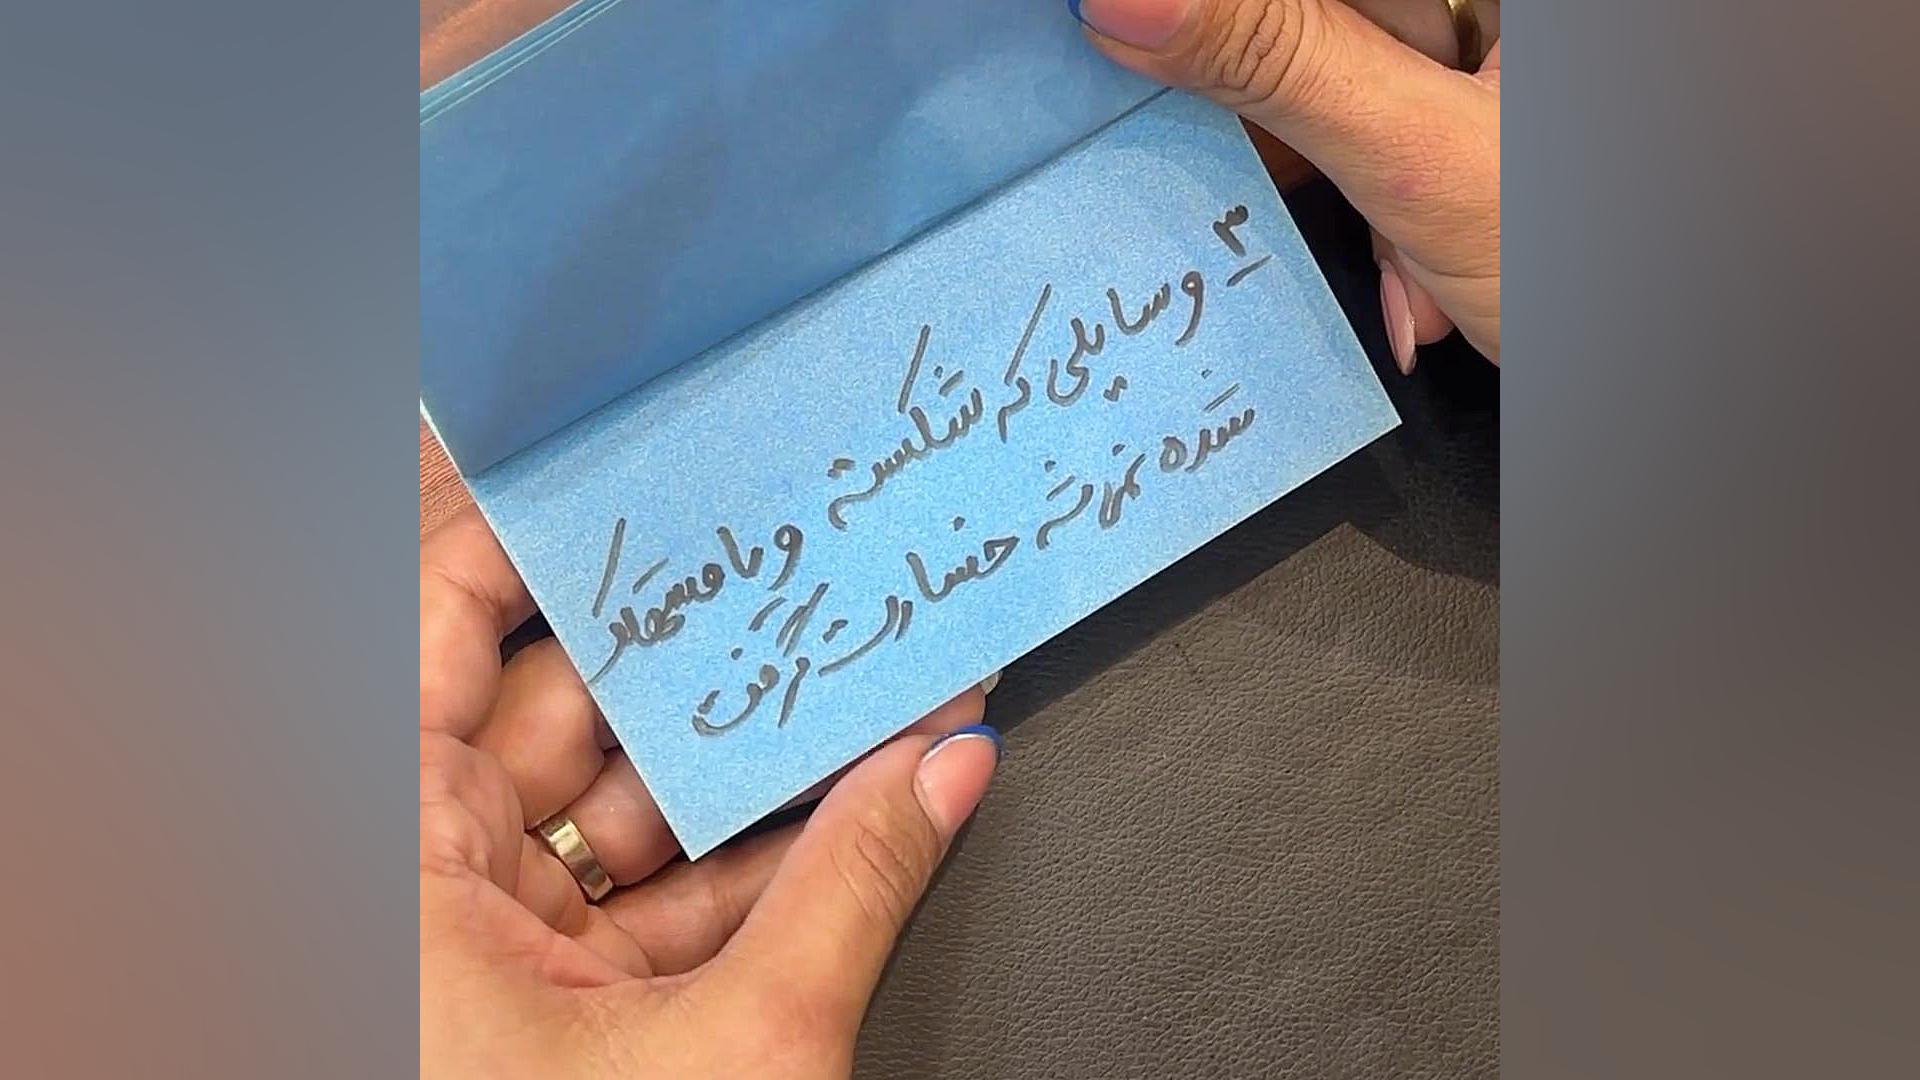 ۳- وسایلی که شکسته و یا مستهلک
شده نمی‌شه خسارت گرفت